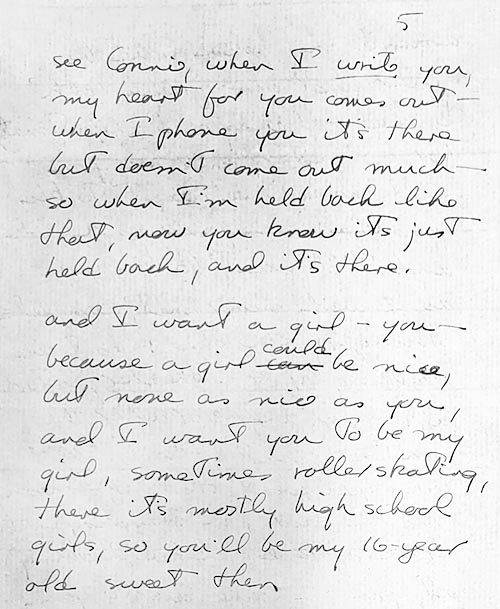 5
see Connie, when I write you,
my heart for you comes out —
when I phone you it's there
but doesn't come out much —
so when I'm held back like
that, now you know it's just
held back, and it's there.
and I want a girl — you —
because a girl can could be nice,
but none as nice as you,
and I want you to be my
girl, sometimes rollerskating,
there it's mostly high school
girls, so you'll be my 16-year
old sweet then